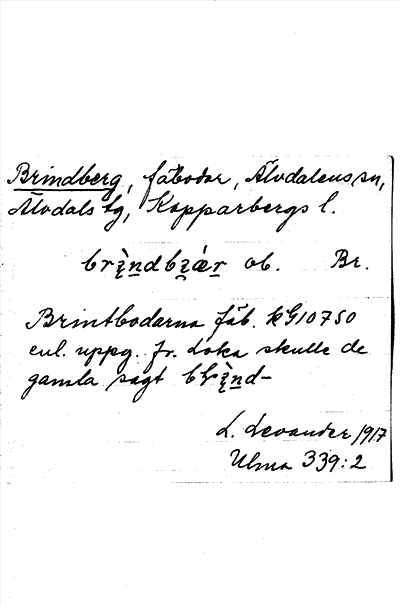 Brindberg, fäbodar, Älvdalens sn,
Älvdals tg, Kopparbergs l.
ob. Br.
Brintbodarna fäb. kG10750
enl. uppg. fr. Loka skulle de
gamla sagt
L. Levander 1917
Ulma 339:2